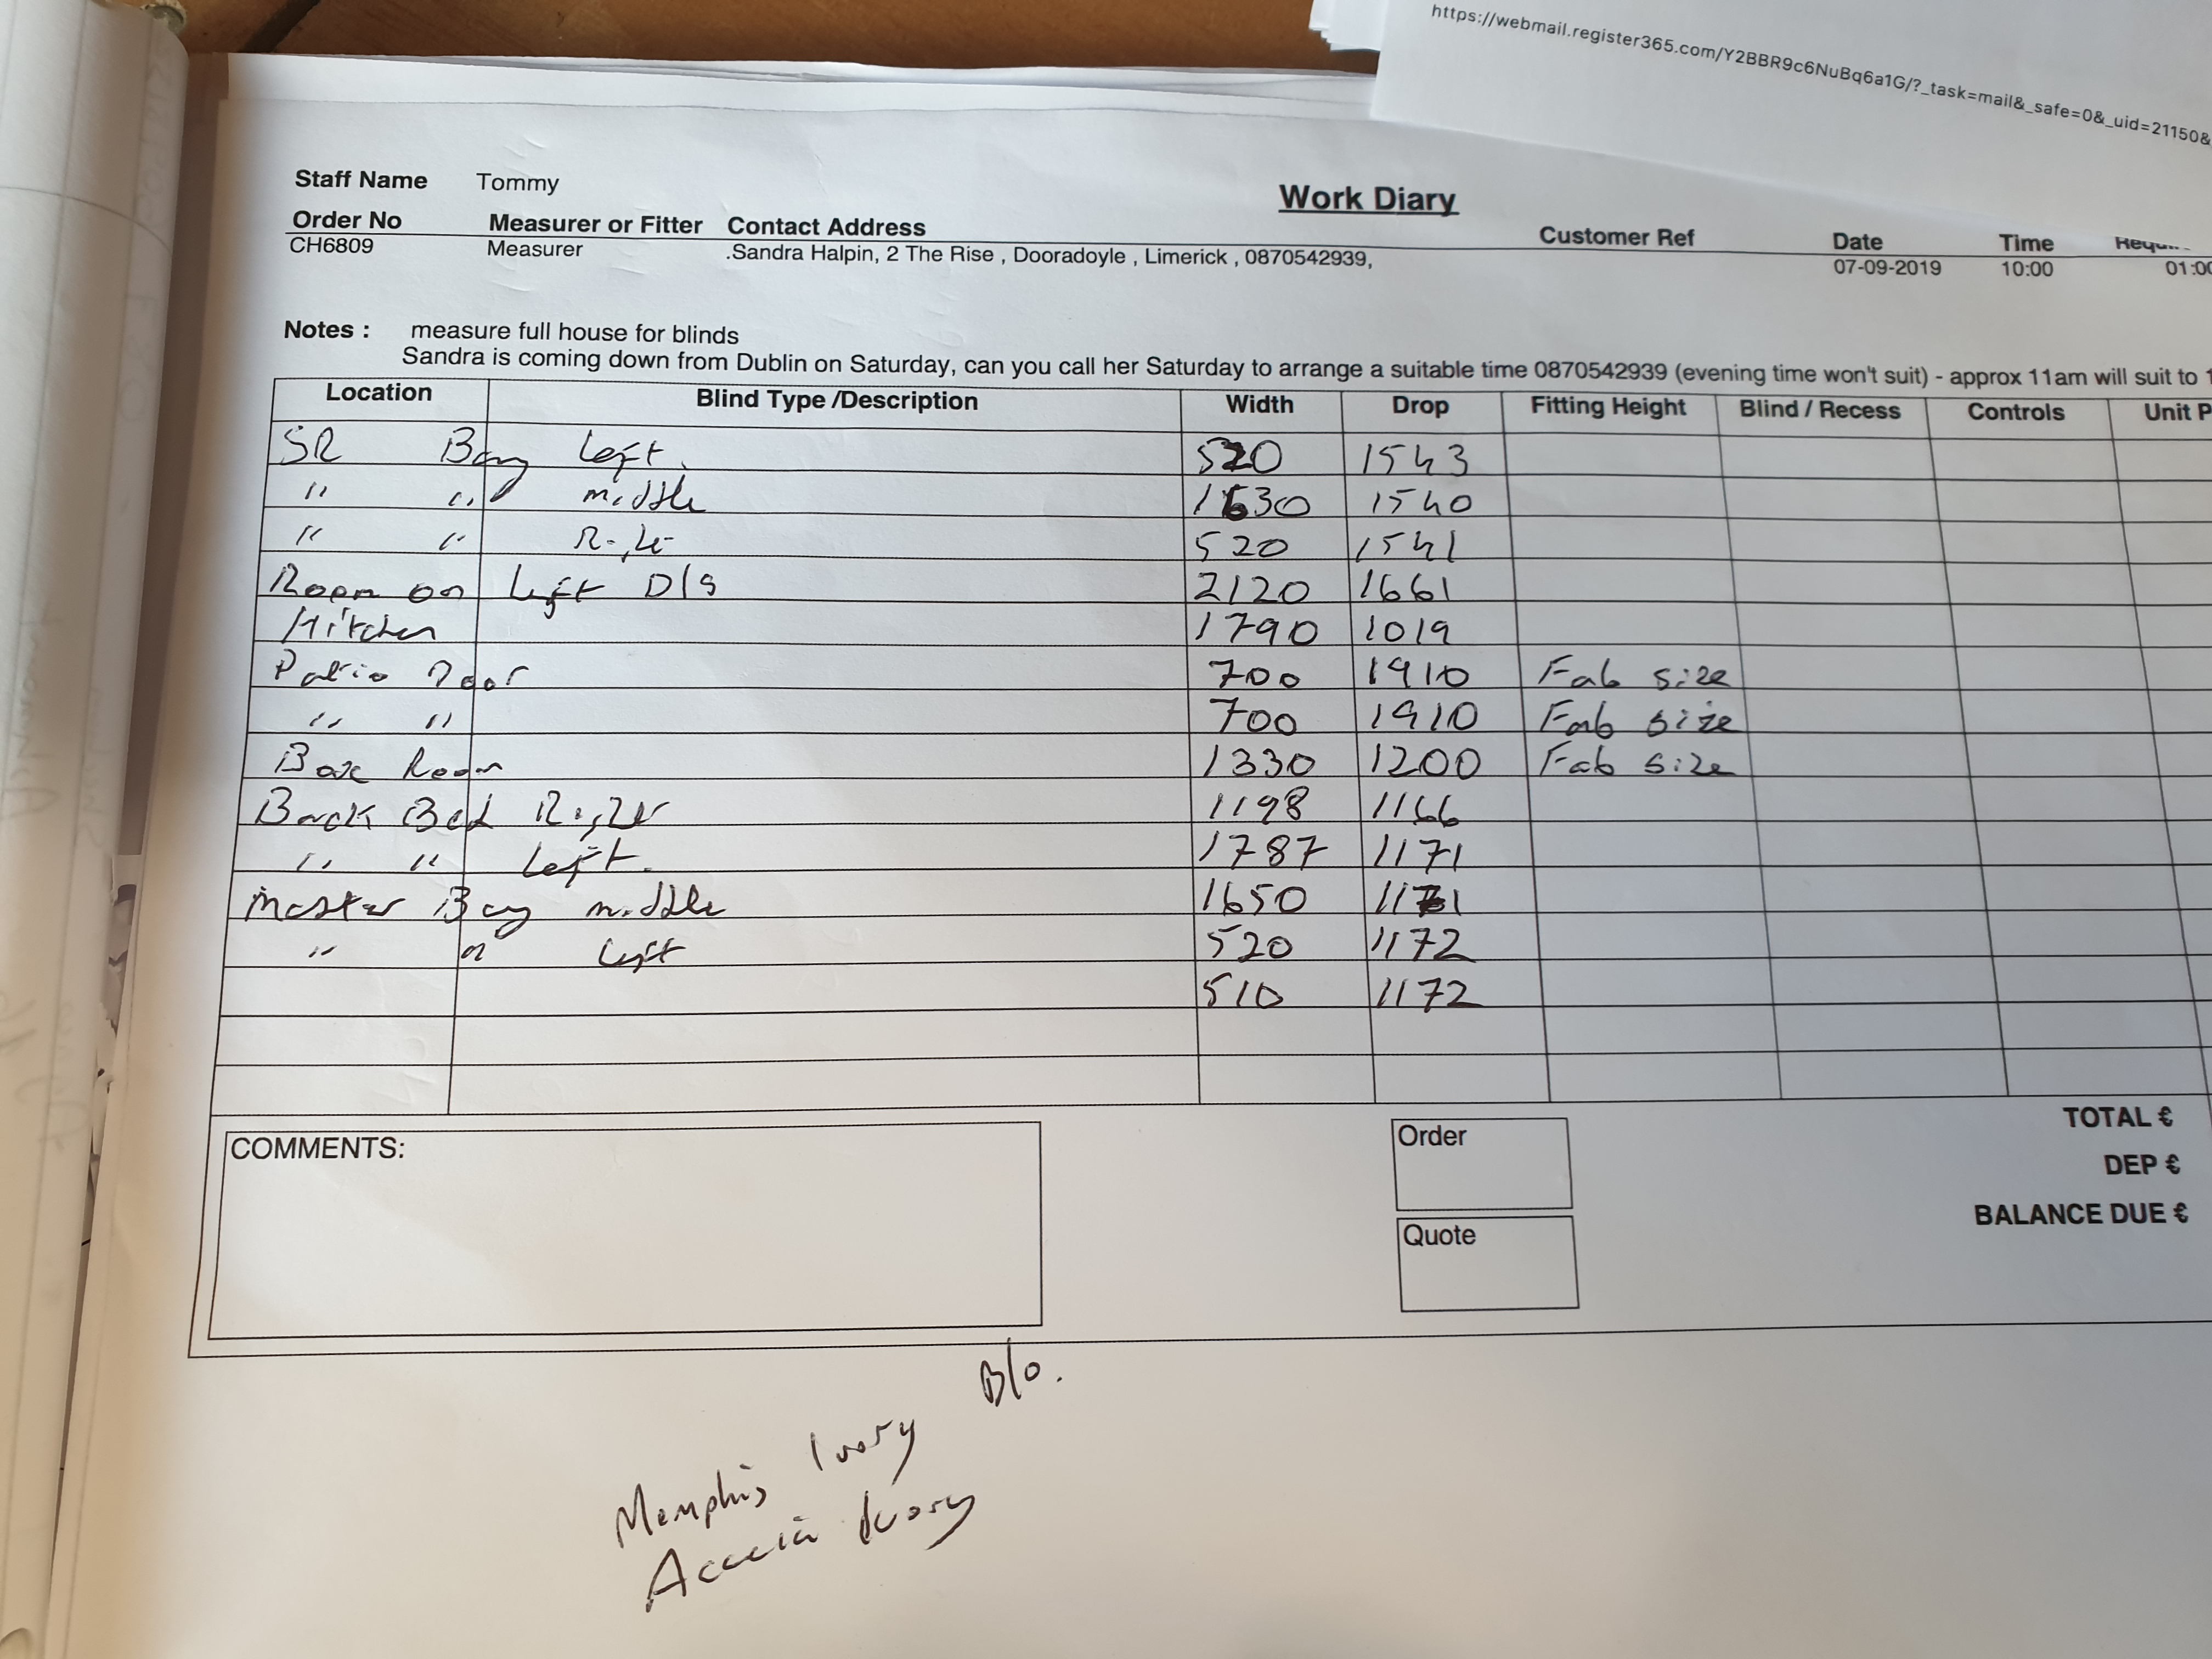 https://webmail.register365.com/Y2BBR9c6NuBq6a1G/?_task=mail&_safe=0&_uid=21150&
Staff Name Tommy
Work Diary
Order No Measurer or Fitter Contact Address Customer Ref Date Time
CH6809 Measurer .Sandra Halpin, 2 The Rise , Dooradoyle , Limerick , 0870542939, 07-09-2019 10:00 01:00
Notes : measure full house for blinds
Sandra is coming down from Dublin on Saturday, can you call her Saturday to arrange a suitable time 0870542939 (evening time won't suit) - approx 11am will suit to 1
Location Blind Type /Description Width Drop Fitting Height Blind / Recess Controls Unit P
SR Bay left 520 1543
" " middle 1630 1540
" " Right 520 1541
Room on left D/S 2120 1661
Kitchen 1790 1019
Patio Door 700 1910 Fab size
" " 700 1910 Fab size
Box Room 1330 1200 Fab size
Back Bed Right 1198 1166
" " left. 1787 1171
Master Bay middle 1650 1171
" " left 520 1172
510 1172
COMMENTS:
Order
Quote
TOTAL €
DEP €
BALANCE DUE €
Memphis Ivory B/o.
Acacia Ivory